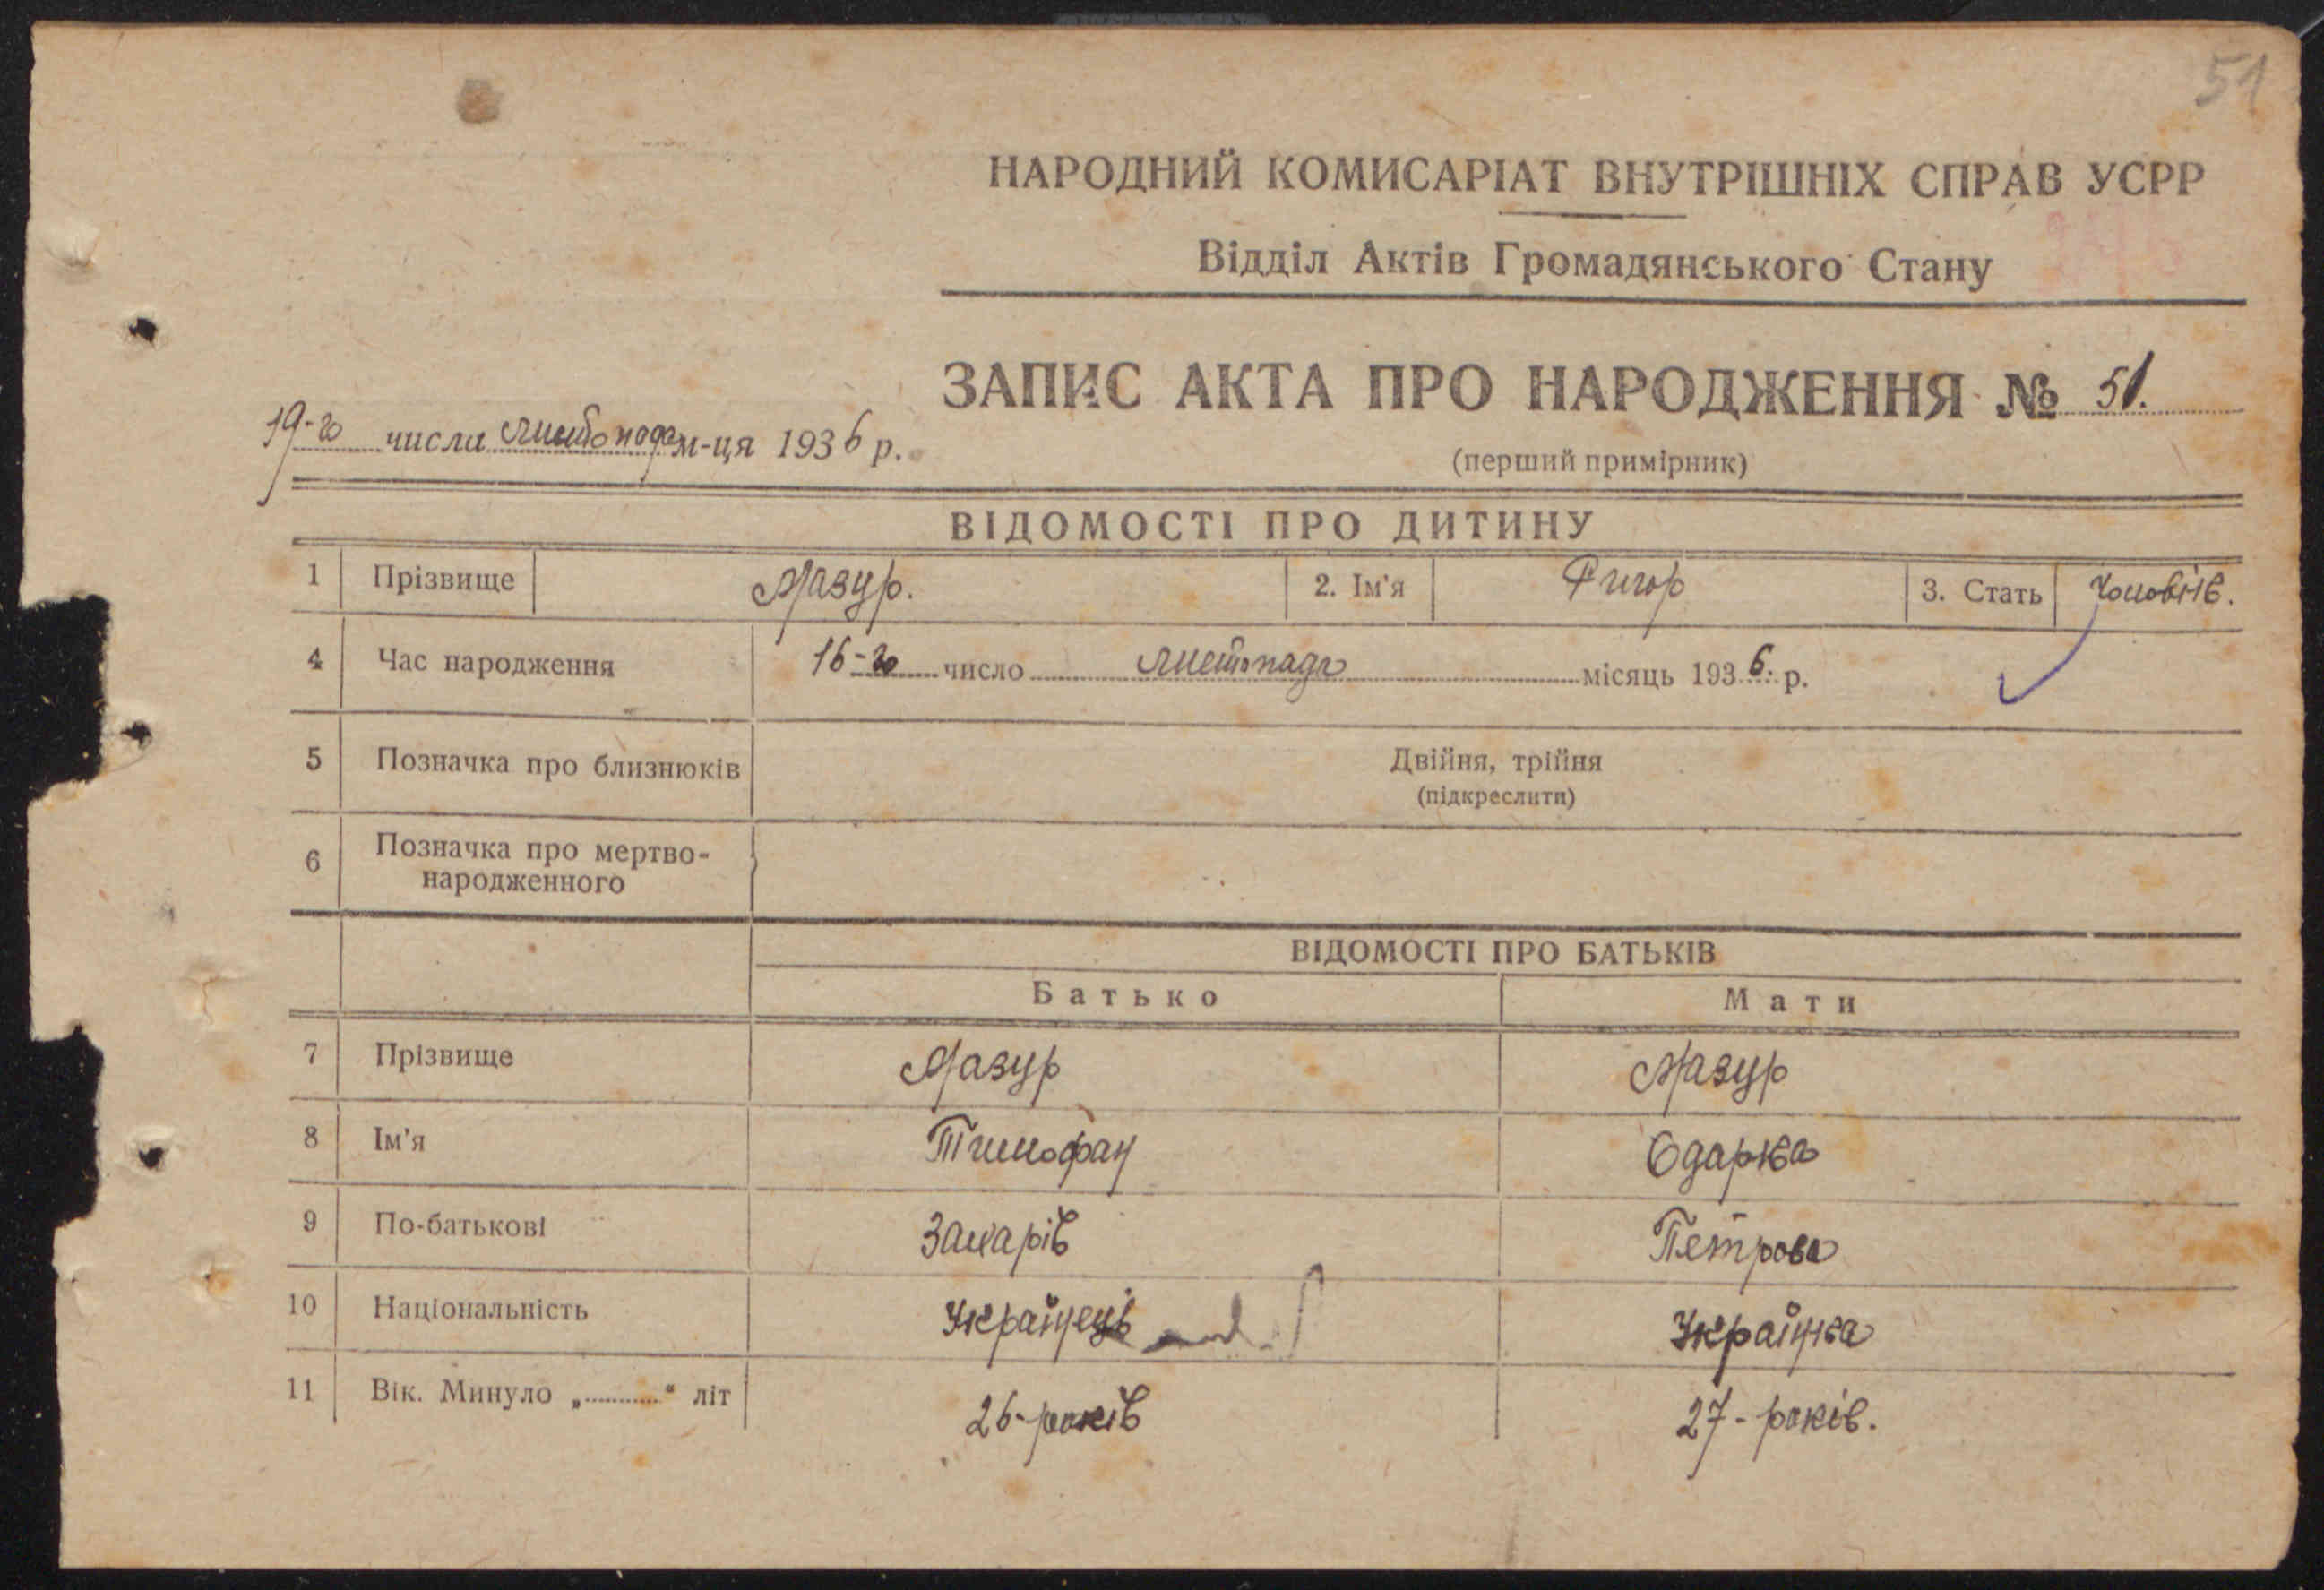 51
НАРОДНИЙ КОМИСАРІАТ ВНУТРІШНІХ СПРАВ УСРР
Відділ Актів Громадянського Стану
ЗАПИС АКТА ПРО НАРОДЖЕННЯ № 51.
19-го числа листопада м-ця 1936 р.
(перший примірник)
ВІДОМОСТІ ПРО ДИТИНУ
1 Прізвище Мазур. 2. Ім'я Григор 3. Стать Чоловік.
4 Час народження 16-го число листопада місяць 1936. р.
5 Позначка про близнюків Двійня, трійня
(підкреслити)
6 Позначка про мертво-
народженного
ВІДОМОСТІ ПРО БАТЬКІВ
Батько Мати
7 Прізвище Мазур Мазур
8 Ім'я Тимофай Одарка
9 По-батькові Захарів Петрова
10 Національність Українець Українка
11 Вік. Минуло „............“ літ 26-років 27-років.